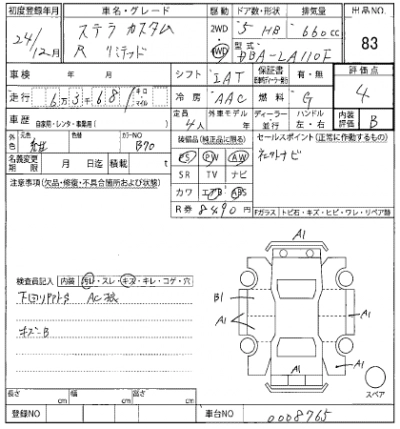 初度登録年月 車名・グレード 駆動 ドア数・形状 排気量 出品NO.
24/12月 ステラ カスタム R リミテッド 2WD・4WD 5 HB 660cc 83
型式 DBA-LA110F
車検 年 月 シフト IAT 保証書 有・無 評価点 4
走行 6万3千681 キロ・マイル 冷房 AAC 燃料 G
車歴 自家用・レンタ・事業用( ) 定員 4人 外車モデル 年 ディーラー 並行 ハンドル 左・右 内装評価 B
外色 元色 紺 色替 カラーNO B70 装備品(純正品に限る) セールスポイント(正常に作動するもの)
PS PW AW
SR TV ナビ
名義変更期限 月 日迄 積載 t
注意事項(欠品・修復・不具合箇所および状態) カワ エアB ABS
R券 8490円
Fガラス・トビ石・キズ・ヒビ・ワレ・リペア跡
検査員記入 内装 汚レ・スレ・キズ・キレ・コゲ・穴
キズ-B
A1
B1
A1
A1
A1
A1
スペア
長さ cm 幅 cm 高さ cm
登録NO 車台NO 0008765